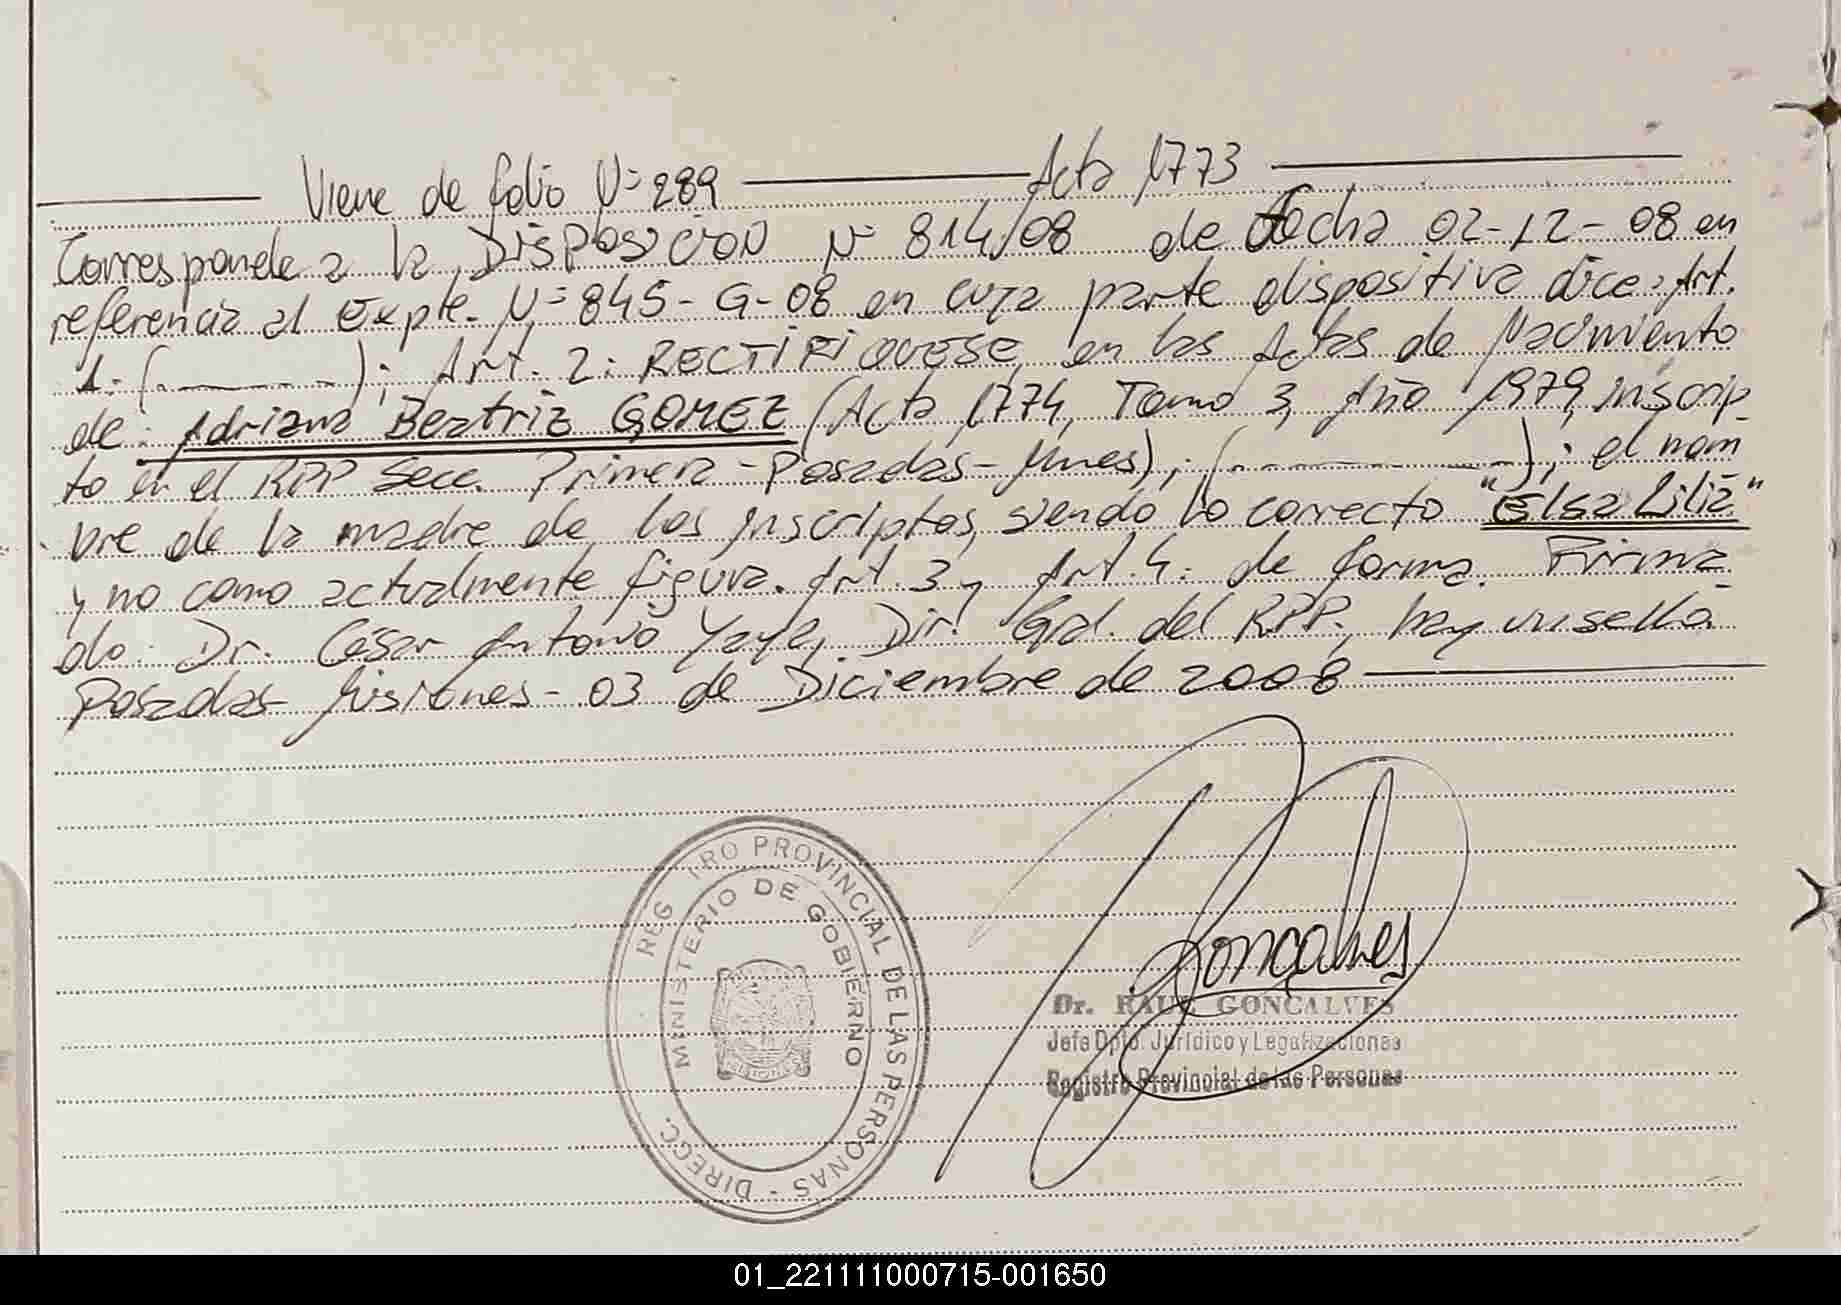 Viene de folio Nº 289 Acta 1773
Corresponde a la DISPOSICION Nº 814/08 de fecha 02-12-08 en
referencia al Expte. Nº 845-G-08 en cuya parte dispositiva dice: Art.
1. (.............); Art. 2: RECTIFIQUESE, en las Actas de Nacimiento
de: Adriana Beatriz GOMEZ (Acta 1774, Tomo 3, Año 1979, inscrip-
to en el RPP Secc. Primera - Posadas - Mnes); (.............); el nom
bre de la madre de los inscriptos, siendo lo correcto "Elsa Lilia"
y no como actualmente figura. Art. 3 y Art. 4: de forma. Firma
do: Dr. César Antonio Yaya, Dir. Gral. del RPP., hay un sello.
Posadas Misiones - 03 de Diciembre de 2008
REG TRO PROVINCIAL DE LAS PERSONAS - DIRECC.
MINISTERIO DE GOBIERNO
MISIONES
Goncalves
Dr. RAUL GONCALVES
Jefe Dpto. Jurídico y Legalizaciones
Registro Provincial de las Personas
01_221111000715-001650